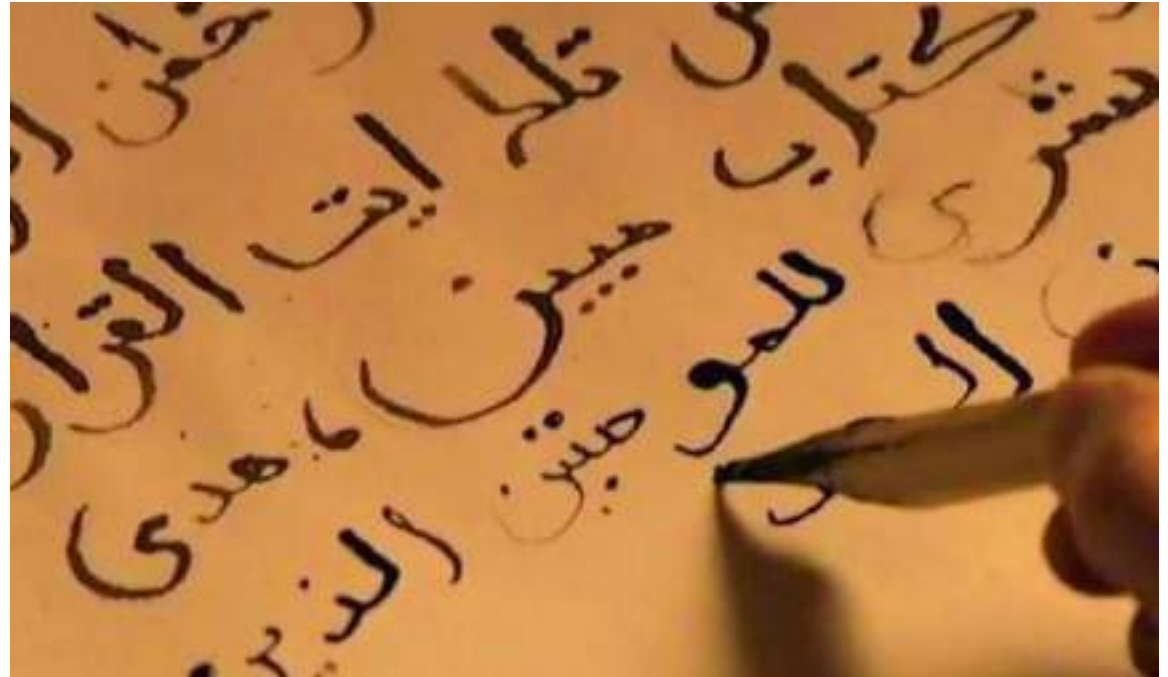 حمن
س تلك ايت القران
كتاب مبين هدى
بشرى للمومنين الذين